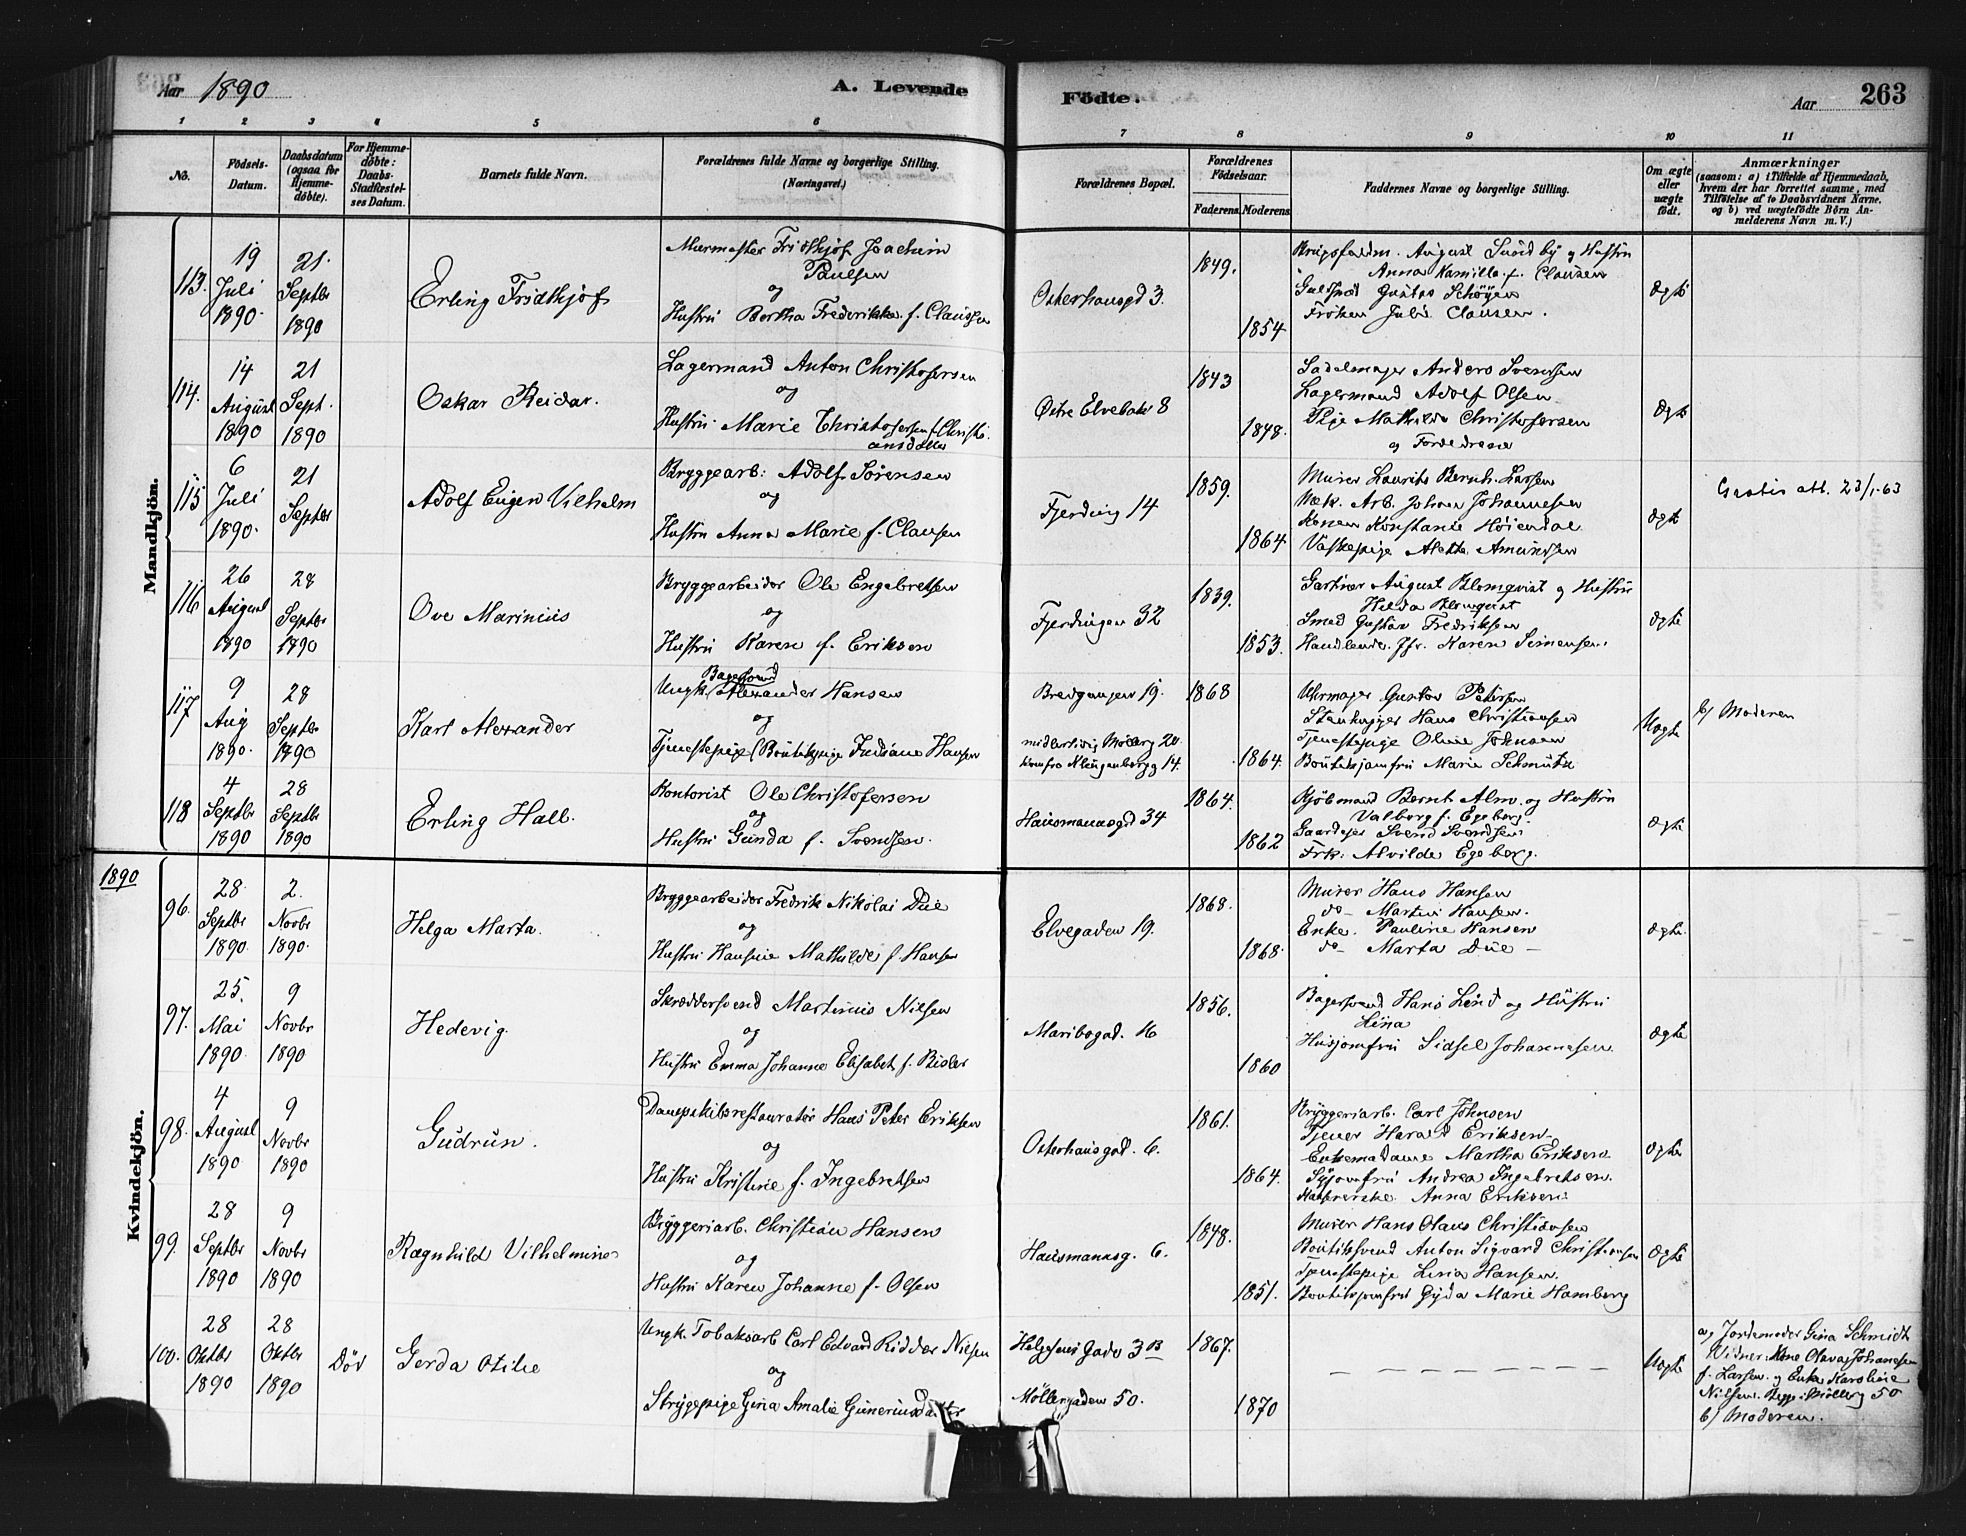 Aar 1890
A. Levende
Födte.
Aar
263
1 2 3 4 5 6 7 8 9 10 11
No.
Födsels-Datum.
Daabsdatum (ogsaa for Hjemme-döbte).
For Hjemme-döbte: Daabs-Stadfæstel-ses Datum.
Barnets fulde Navn.
Forældrenes fulde Navne og borgerlige Stilling.
(Næringsvei.)
Forældrenes Bopæl.
Forældrenes Födselsaar.
Faderens.
Moderens.
Faddernes Navne og borgerlige Stilling.
Om ægte eller uægte födt.
Anmærkninger
(saasom: a) i Tilfælde af Hjemmedaab,
hvem der har forrettet samme, med
Tilföielse af to Daabsvidners Navne.
og b) ved uægtefödte Börn An-
melderens Navn m. V.)
Mandkjön.
113.
19 Juli 1890.
21. Septbr 1890
Erling Fridthjof
Murmester Fridthjof Joachim
Paulsen
og
Hustru Bertha Frederikke f. Claussen
Osterhausgd 3.
1849.
1854.
August Sundby og Hustru
Anna Kamilla f. Clausen
Gustav Schöyen
Fröken Julie Clausen.
Ægte
114.
14 August 1890
21 Sept. 1890
Oskar Reidar.
Lagermand Anton Christofersen
og
Hustru Marie Christofersen f. Christi-
ansdatter
Östre Elvebak 8
1843
1848.
Sadelmager Anders Svendsen
Lagermand Adolf Olsen
Pige Mathilde Christofersen
og Forældrene
Ægte
115
6 Juli 1890.
21 Septbr
Adolf Eugen Vilhelm
Bryggearb: Adolf Sörensen
og
Hustru Anna Marie f. Clausen
Fjerding 14
1859.
1864.
Murer Laurits Bernh. Larsen
Mek. Arb. Johan Johannesen
Konen Konstanse Höiendal
Vaskepige Alette Amundsen
Ægte
att. 23/1-63
116
26 August 1890
28 Septbr 1890
Ove Marinius
Bryggearbeider Ole Engebretsen
og
Hustru Karen f. Eriksen
Fjerdingen 32
1839.
1853.
Gartner August Blomqvist og Hustru
Hilda Blomqvist
Smed Gustav Fredriksen
Handlende Jfr. Karen Simensen.
Ægte
117
9 Aug 1890.
28 Septbr 1890
Karl Alexander
Bagersvend
Ungk. Alexander Hansen
og
Tjenestepige (Boutikpige Juliane Hansen
Bredgangen 19.
midlertidig Möllerg 20.
komfra Klingenbergg 14.
1868
1864.
Uhrmager Gustav Petersen
Stenhugger Hans Christiansen
Tjenestepige Oline Johnsen
Boutikjomfru Marie Schmütz
Uægte
b/ Moderen
118
4 Septbr 1890
28 Septbr 1890
Erling Hall.
Kontorist Ole Christofersen
og
Hustru Gunda f. Svendsen.
Hausmannsgd 34
1864.
1862
Kjöbmand Bernt Alm og Hustru
Valborg f. Egeberg.
Gaardejer Svend Svendsen
Frk: Alvilde Egeberg.
Ægte
1890
Kvindekjön.
96.
28. Septbr 1890.
2. Novbr 1890.
Helga Marta.
Bryggearbeider Fredrik Nikolai Due
og
Hustru Hansine Mathilde f. Hansen
Elvegaden 19.
1868.
1868.
Murer Hans Hansen
do- Martin Hansen.
Enke. Pauline Hansen
do- Marta Due -
Ægte.
97.
25. Mai 1890.
9 Novbr 1890
Hedevig.
Skræddersvend Martinius Nilsen
og
Hustru Emma Johanne Elisabet f. Bisler
Maribogad. 16
1856.
1860
Bagersvend Hans Lind og Hustru
Lina
Husjomfru Sidsel Johannesen.
Ægte
98.
4 August 1890
9 Novbr 1890
Gudrun.
Dampskibsrestauratör Hans Peter Eriksen
og
Hustru Kristine f. Ingebretsen
Osterhausgad. 6.
1861.
1864.
Bryggeriarb. Carl Johnsen
Tjener Harald Eriksen.
Enkemadame Martha Eriksen
Syjomfru Andrea Ingebretsen.
Anna Eriksen.
Ægte
99.
28 Septbr 1890
9 Novbr 1890
Ragnhild Vilhelmine
Bryggeriarb. Christian Hansen
og
Hustru Karen Johanne f. Olsen
Hausmannsg. 6.
1848.
1851.
Murer Hans Olaus Christiansen
Boutiksvend Anton Sigvard Christiansen
Tjenestepige Lina Hansen.
Boutiksjomfru Gyda Marie Hamberg
Ægte
100.
28 Oktbr 1890
28 Oktbr 1890
Död
Gerda Otilie
Ungk. Tobaksarb Carl Edvard Ridder Nilsen
og
Strygepige Gina Amalie Guneriusdatter
Helgesens Gade 3 B
Möllergaden 50.
1867.
1870
Uægte
a, Jordemoder Gina Schmidt
Vidner: Kone Olava Johannesen
f. Larsen. og Enke Karoline
Nilsen. Begge: Möllerg 50
b/ Moderen.